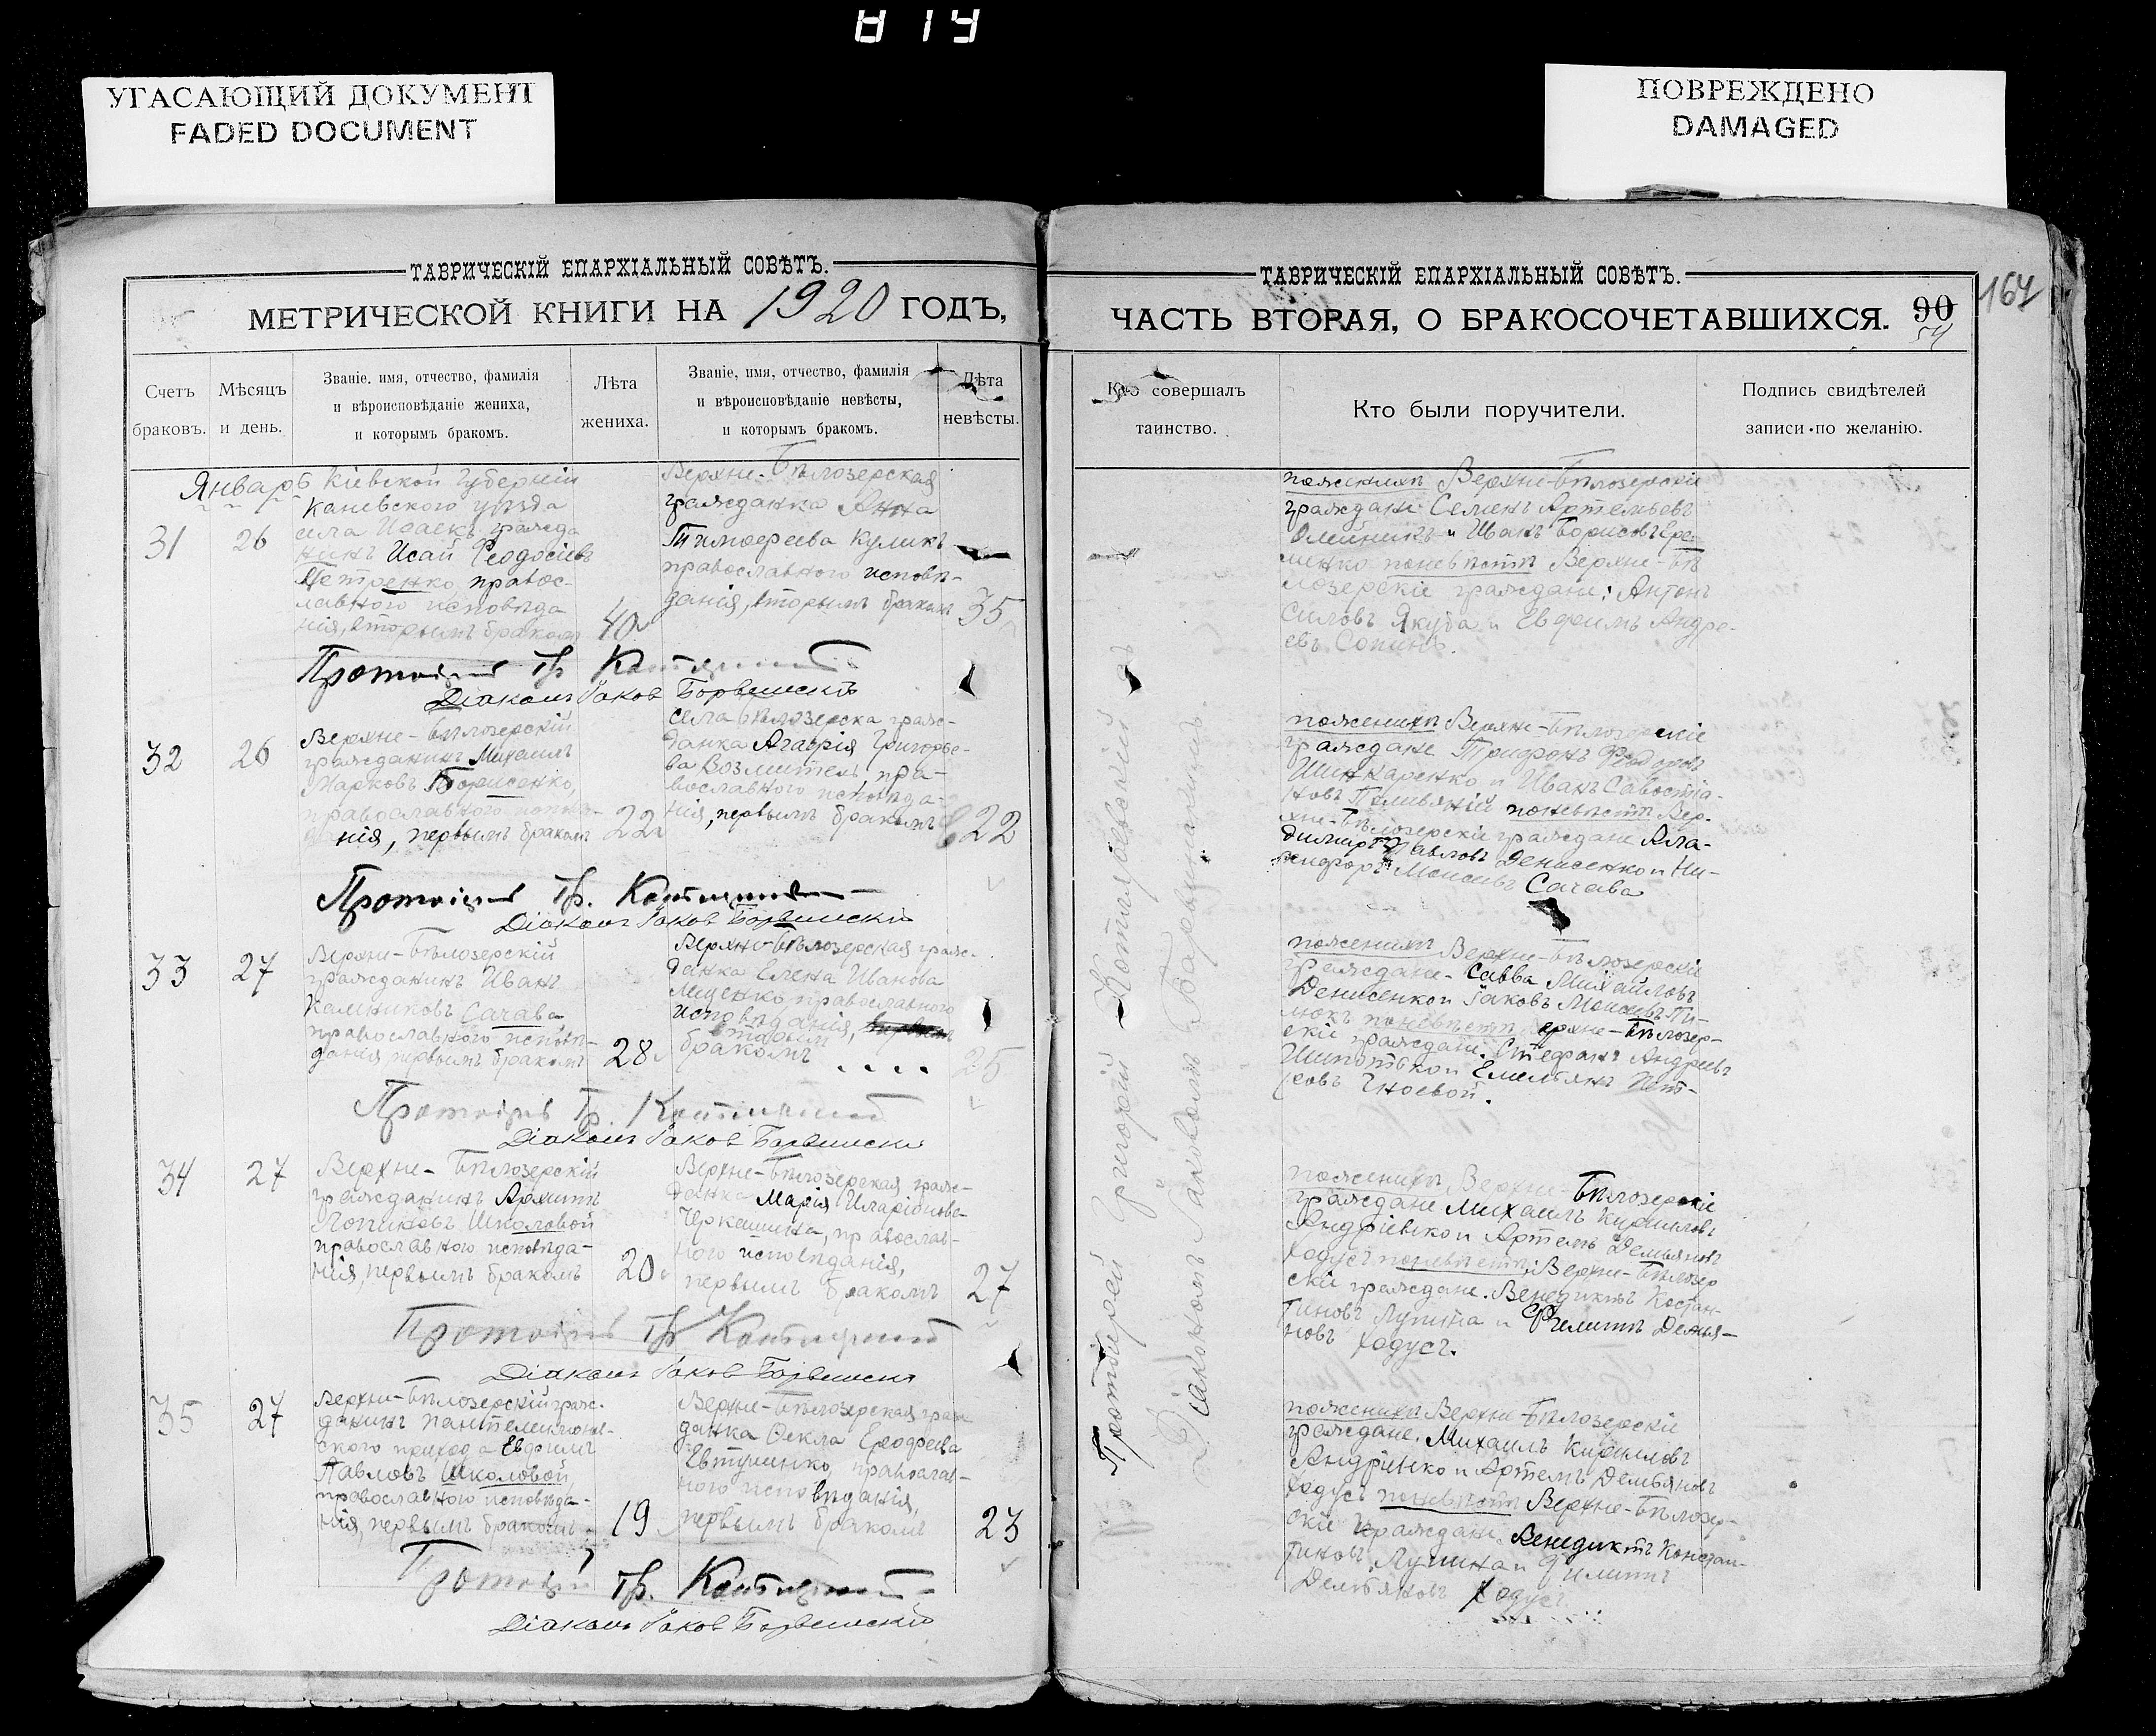 819
УГАСАЮЩИЙ ДОКУМЕНТ
FADED DOCUMENT
ПОВРЕЖДЕНО
DAMAGED
ТАВРИЧЕСКІЙ ЕПАРХІАЛЬНЫЙ СОВѢТЪ.
МЕТРИЧЕСКОЙ КНИГИ НА 1920 ГОДЪ,
Счетъ браковъ.
Мѣсяцъ и день.
Званіе, имя, отчество, фамилія
и вѣроисповѣданіе жениха,
и которымъ бракомъ.
Лѣта
жениха.
Званіе, имя, отчество, фамилія
и вѣроисповѣданіе невѣсты,
и которымъ бракомъ.
Лѣта
невѣсты.
Январь
31
26
Кіевской Губерніи
Каневского уѣзда
села гражда
нинъ Исай Феодосіевъ
Петренко, правос-
лавного исповѣда
нія, вторымъ бракомъ
40
Верхне-Бѣлозерская
гражданка Анна
Тимофеева Куликъ
православного исповѣ-
данія, вторымъ бракомъ
35
Протоіерей Гр.
Діаконъ Іаковъ
32
26
Верхне-Бѣлозерскій
гражданинъ Михаилъ
Марковъ Борисенко,
православного исповѣ-
данія, первымъ бракомъ
22
села Бѣлозерска граж-
данка Агафія Григорье-
ва Возмитель, пра-
вославного исповѣда-
нія, первымъ бракомъ
22
Протоіерей Гр.
Діаконъ Іаковъ
33
27
Верхне-Бѣлозерскій
гражданинъ Иванъ
Калниковъ Сачава
православного исповѣ-
данія первымъ бракомъ
28
Верхне-Бѣлозерская граж-
данка Елена Иванова
Мищенко, православного
исповѣданія,
вторым
бракомъ
25
Протоіерей Гр.
Діаконъ Іаковъ
34
27
Верхне-Бѣлозерскій
гражданинъ Архипъ
Логиновъ Школовой
православного исповѣда-
нія, первымъ бракомъ
20
Верхне-Бѣлозерская граж-
данка Марія Иларіонова
православ-
ного исповѣданія,
первымъ бракомъ
27
Протоіерей Гр.
Діаконъ Іаковъ
35
27
Верхне-Бѣлозерскій граж-
данинъ Пантелеимонов-
ского прихода Евфимъ
Павловъ Школовой,
православного исповѣда-
нія, первымъ бракомъ
19
Верхне-Бѣлозерская граж
данка Фекла Ерофеева
Евтушенко, православ-
ного исповѣданія,
первымъ бракомъ
23
Протоіерей Гр.
Діаконъ Іаковъ
ТАВРИЧЕСКІЙ ЕПАРХІАЛЬНЫЙ СОВѢТЪ.
ЧАСТЬ ВТОРАЯ, О БРАКОСОЧЕТАВШИХСЯ. 90
54
167
Кто совершалъ
таинство.
Кто были поручители.
Подпись свидѣтелей
записи по желанію.
Протоіерей Григорій
Діакономъ Іаковомъ
пожениху Верхне-Бѣлозерскіе
граждане: Семенъ Артемьевъ
Олейникъ и Иванъ Борисовъ Ере-
менко поневѣстѣ Верхне-Бѣ
лозерскіе граждане: Антонъ
Силовъ Якуба и Евфимъ Андре-
евъ Сопинъ.
пожениху Верхне-Бѣлозерскіе
граждане Трифонъ Феодоровъ
Шинкаренко и Иванъ Савостіа-
новъ Поливяній поневѣстѣ Вер-
хне-Бѣлозерскіе граждане Вла-
димиръ Павловъ Денисенко и Ни-
кифоръ Моисеевъ Сачава
пожениху Верхне-Бѣлозерскіе
граждане- Савва Михайловъ
Денисенко и Іаковъ Моисеевъ Ти-
люкъ поневѣстѣ Верхне-Бѣлозер-
скіе граждане. Стефанъ Андреевъ
и Емельянъ Пет-
ровъ Гноевой.
пожениху Верхне-Бѣлозерскіе
граждане Михаилъ Кириловъ
Андріенко и Артемъ Демьяновъ
Ходусъ поневѣстѣ, Верхне-Бѣлозер
скіе граждане. Венедиктъ Констан-
тиновъ Лупина и Филиппъ Демья-
новъ Ходусъ.
пожениху Верхне-Бѣлозерскіе
граждане. Михаилъ Кириловъ
Андріенко и Артемъ Демьяновъ
Ходусъ поневѣстѣ Верхне-Бѣлозер-
скіе граждане Венедиктъ Констан-
тиновъ Лупина и Филиппъ
Демьяновъ Ходусъ